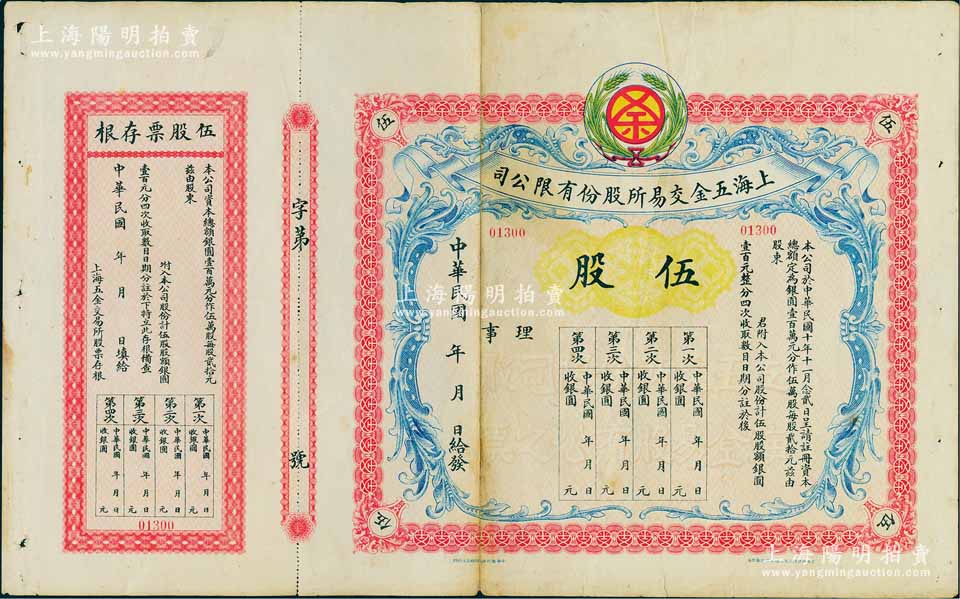 上海陽明拍賣
www.yangmingauction.com
伍
伍
上海五金交易所股份有限公司
01300
01300
伍股
本公司於中華民國十年十一月念貳日呈請註冊資本
總額定為銀圓壹百萬元分作伍萬股每股貳拾元茲由
股東
君附入本公司股份計伍股股額銀圓
壹百元整分四次收取數目日期分註於後
第一次
中華民國 年 月 日
收銀圓 元
第二次
中華民國 年 月 日
收銀圓 元
第三次
中華民國 年 月 日
收銀圓 元
第四次
中華民國 年 月 日
收銀圓 元
理
事
中華民國 年 月 日給發
伍
伍
字第 號
伍股票存根
本公司資本總額銀圓壹百萬元分作伍萬股每股貳拾元
茲由股東
附入本公司股份計伍股股額銀圓
壹百元分四次收取數目日期分註於下特立此存根備查
中華民國 年 月 日填給
上海五金交易所股票存根
第一次
中華民國 年 月 日
收銀圓 元
第二次
中華民國 年 月 日
收銀圓 元
第三次
中華民國 年 月 日
收銀圓 元
第四次
中華民國 年 月 日
收銀圓 元
01300
上海陽明拍賣
www.yangmingauction.com
上海陽明拍賣
www.yangmingauction.com